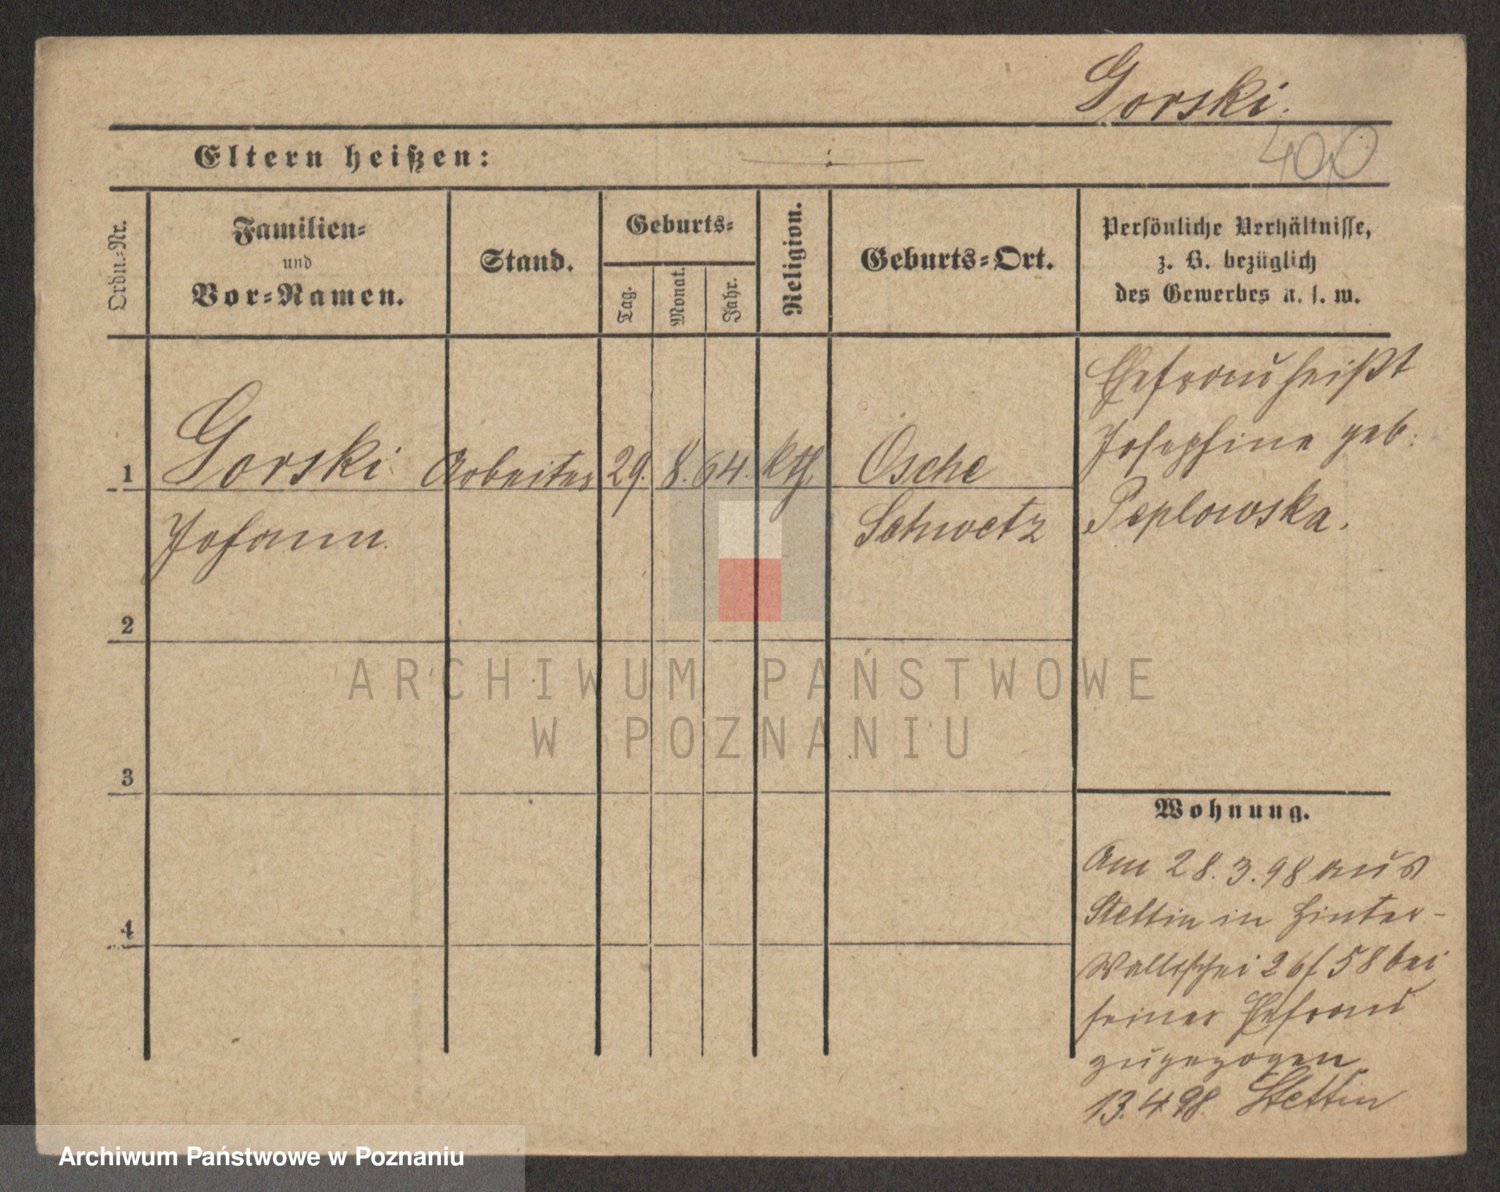 Gorski.
400
Eltern heißen:
Ordn.-Nr.
Familien-
und
Vor-Namen.
Stand.
Geburts-
Tag.
Monat.
Jahr.
Religion.
Geburts-Ort.
Persönliche Verhältnisse,
z. B. bezüglich
des Gewerbes u. s. w.
1
Gorski
Johann.
Arbeiter
29.
8.
64.
kth.
Osche
Schwetz
Ehefrau heißt
Josephine geb.
Peplowska.
2
3
4
Wohnung.
Am 28.3.98 aus
Stettin in Hinter-
Wallischei 26/58 bei
seiner Ehefrau
zugezogen
13.4.98. Stettin
ARCHIWUM PAŃSTWOWE
W POZNANIU
Archiwum Państwowe w Poznaniu